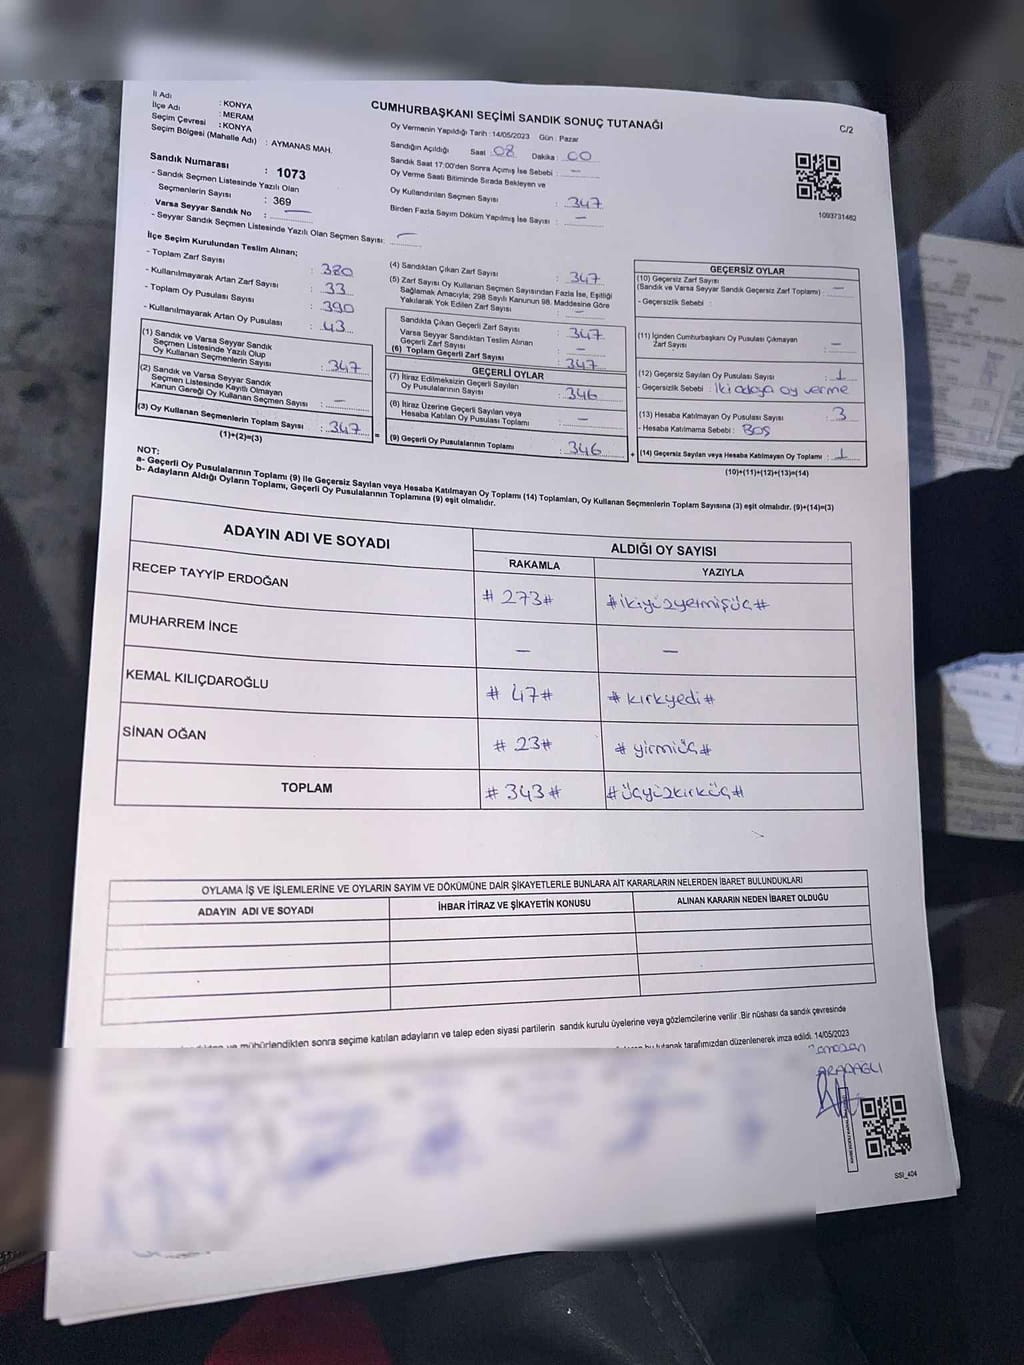 İl Adı : KONYA
İlçe Adı : MERAM
Seçim Çevresi : KONYA
Seçim Bölgesi (Mahalle Adı) : AYMANAS MAH.
CUMHURBAŞKANI SEÇİMİ SANDIK SONUÇ TUTANAĞI
C/2
Oy Vermenin Yapıldığı Tarih : 14/05/2023 Gün : Pazar
Sandığın Açıldığı Saat 08 Dakika : 00
Sandık Saat 17:00'den Sonra Açılmış İse Sebebi : —
Oy Verme Saati Bitiminde Sırada Bekleyen ve
Oy Kullandırılan Seçmen Sayısı : 347
Birden Fazla Sayım Döküm Yapılmış İse Sayısı : —
1093731462
Sandık Numarası : 1073
- Sandık Seçmen Listesinde Yazılı Olan
Seçmenlerin Sayısı : 369
Varsa Seyyar Sandık No : —
- Seyyar Sandık Seçmen Listesinde Yazılı Olan Seçmen Sayısı: —
İlçe Seçim Kurulundan Teslim Alınan;
- Toplam Zarf Sayısı : 380
- Kullanılmayarak Artan Zarf Sayısı : 33
- Toplam Oy Pusulası Sayısı : 390
- Kullanılmayarak Artan Oy Pusulası : 43
(1) Sandık ve Varsa Seyyar Sandık
Seçmen Listesinde Yazılı Olup
Oy Kullanan Seçmenlerin Sayısı : 347
(2) Sandık ve Varsa Seyyar Sandık
Seçmen Listesinde Kayıtlı Olmayan
Kanun Gereği Oy Kullanan Seçmen Sayısı : —
(3) Oy Kullanan Seçmenlerin Toplam Sayısı : 347 =
(1)+(2)=(3)
(4) Sandıktan Çıkan Zarf Sayısı : 347
(5) Zarf Sayısı Oy Kullanan Seçmen Sayısından Fazla İse, Eşitliği
Sağlamak Amacıyla; 298 Sayılı Kanunun 98. Maddesine Göre
Yakılarak Yok Edilen Zarf Sayısı : —
Sandıkta Çıkan Geçerli Zarf Sayısı : 347
Varsa Seyyar Sandıktan Teslim Alınan
Geçerli Zarf Sayısı : —
(6) Toplam Geçerli Zarf Sayısı : 347
GEÇERLİ OYLAR
(7) İtiraz Edilmeksizin Geçerli Sayılan
Oy Pusulalarının Sayısı : 346
(8) İtiraz Üzerine Geçerli Sayılan veya
Hesaba Katılan Oy Pusulası Toplamı : —
(9) Geçerli Oy Pusulalarının Toplamı : 346 +
GEÇERSİZ OYLAR
(10) Geçersiz Zarf Sayısı
(Sandık ve Varsa Seyyar Sandık Geçersiz Zarf Toplamı) : —
- Geçersizlik Sebebi :
(11) İçinden Cumhurbaşkanı Oy Pusulası Çıkmayan
Zarf Sayısı : —
(12) Geçersiz Sayılan Oy Pusulası Sayısı : 1
- Geçersizlik Sebebi : İki adaya oy verme
(13) Hesaba Katılmayan Oy Pusulası Sayısı : 3
- Hesaba Katılmama Sebebi : BOŞ
(14) Geçersiz Sayılan veya Hesaba Katılmayan Oy Toplamı : 1
(10)+(11)+(12)+(13)=(14)
NOT:
a- Geçerli Oy Pusulalarının Toplamı (9) ile Geçersiz Sayılan veya Hesaba Katılmayan Oy Toplamı (14) Toplamları, Oy Kullanan Seçmenlerin Toplam Sayısına (3) eşit olmalıdır. (9)+(14)=(3)
b- Adayların Aldığı Oyların Toplamı, Geçerli Oy Pusulalarının Toplamına (9) eşit olmalıdır.
ADAYIN ADI VE SOYADI ALDIĞI OY SAYISI
RAKAMLA YAZIYLA
RECEP TAYYİP ERDOĞAN #273# #ikiyüzyetmişüç#
MUHARREM İNCE — —
KEMAL KILIÇDAROĞLU #47# #kırkyedi#
SİNAN OĞAN #23# #yirmiüç#
TOPLAM #343# #üçyüzkırküç#
OYLAMA İŞ VE İŞLEMLERİNE VE OYLARIN SAYIM VE DÖKÜMÜNE DAİR ŞİKAYETLERLE BUNLARA AİT KARARLARIN NELERDEN İBARET BULUNDUKLARI
ADAYIN ADI VE SOYADI İHBAR İTİRAZ VE ŞİKAYETİN KONUSU ALINAN KARARIN NEDEN İBARET OLDUĞU
mühürlendikten sonra seçime katılan adayların ve talep eden siyasi partilerin sandık kurulu üyelerine veya gözlemcilerine verilir .Bir nüshası da sandık çevresinde
bu tutanak tarafımızdan düzenlenerek imza edildi. 14/05/2023
SSI_404